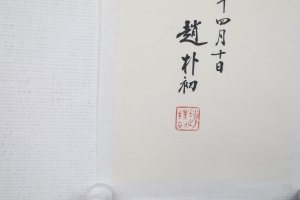 十四月十日
趙朴初